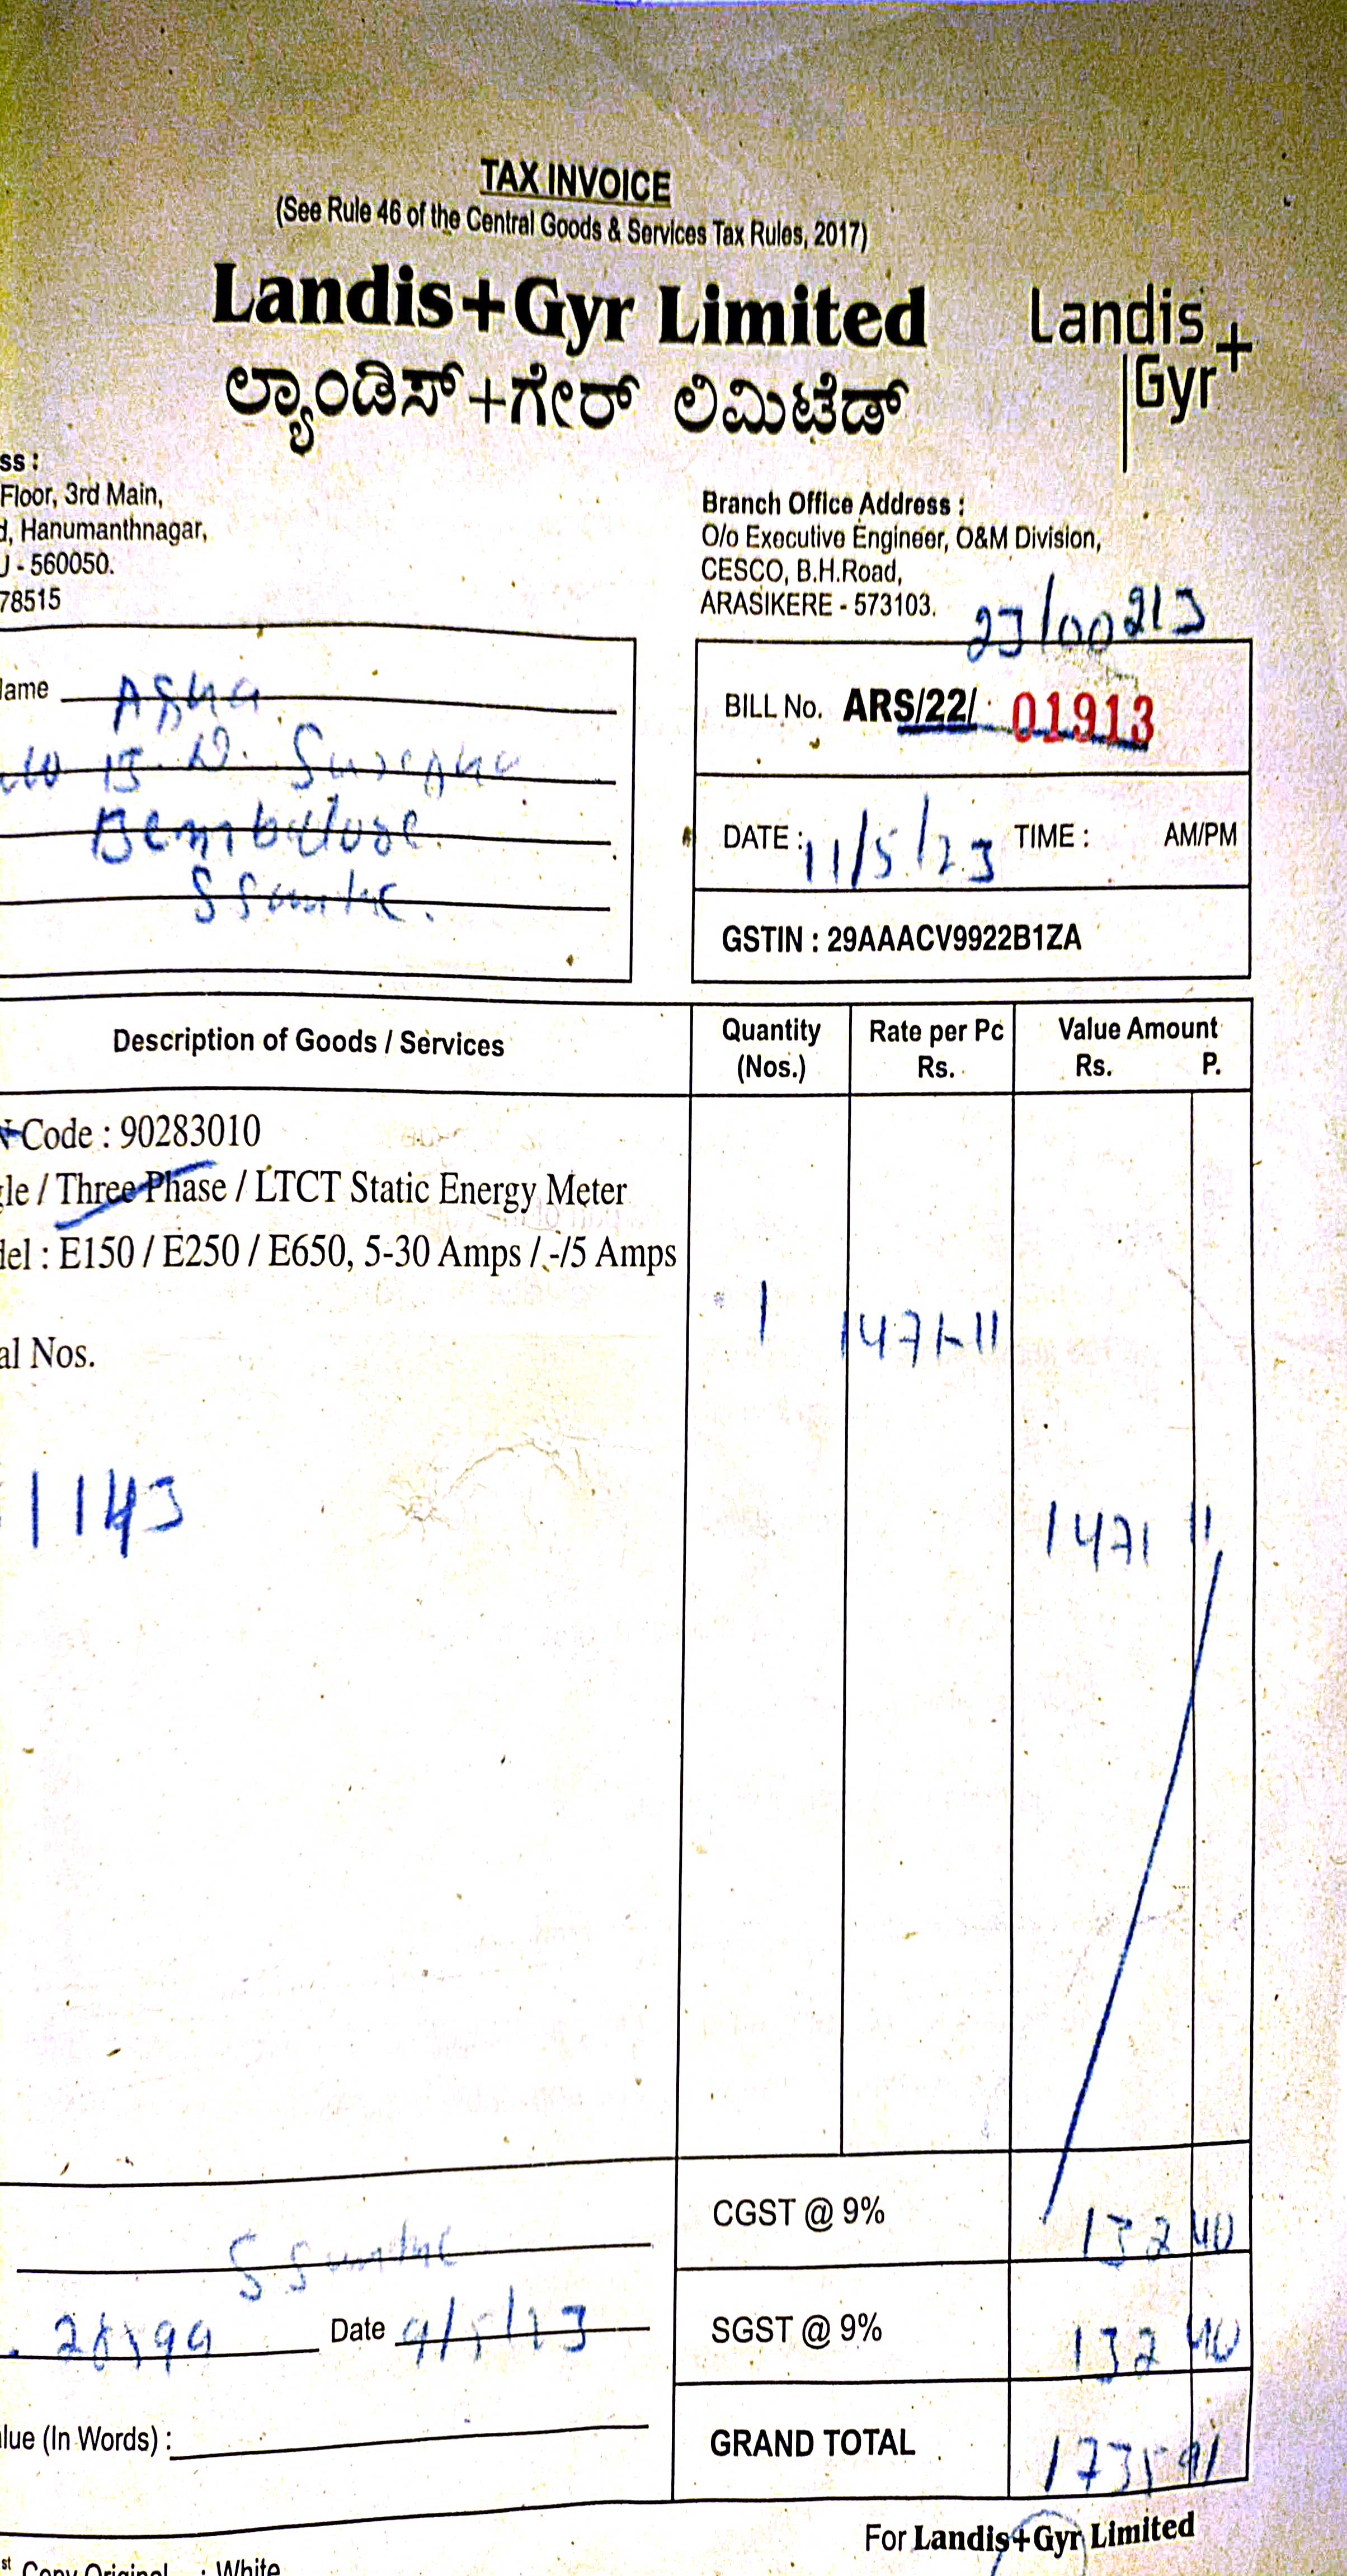 TAX INVOICE
(See Rule 46 of the Central Goods & Services Tax Rules, 2017)
Landis+Gyr Limited
ಲ್ಯಾಂಡಿಸ್+ಗೇರ್ ಲಿಮಿಟೆಡ್
Landis
Gyr+
ss :
Floor, 3rd Main,
d, Hanumanthnagar,
U - 560050.
78515
Branch Office Address :
O/o Executive Engineer, O&M Division,
CESCO, B.H.Road,
ARASIKERE - 573103.
23/00213
lame Asha
BILL No. ARS/22/ 01913
DATE : 11/5/23 TIME : AM/PM
GSTIN : 29AAACV9922B1ZA
Description of Goods / Services
Quantity (Nos.)
Rate per Pc Rs.
Value Amount Rs. P.
N Code : 90283010
gle / Three Phase / LTCT Static Energy Meter
del : E150 / E250 / E650, 5-30 Amps / -/5 Amps
1 1471-11
al Nos.
1143
1471 11
CGST @ 9% 132 40
Date 9/5/23
SGST @ 9% 132 40
alue (In Words) :
GRAND TOTAL 1735 91
For Landis+Gyr Limited
st Copy Original : White